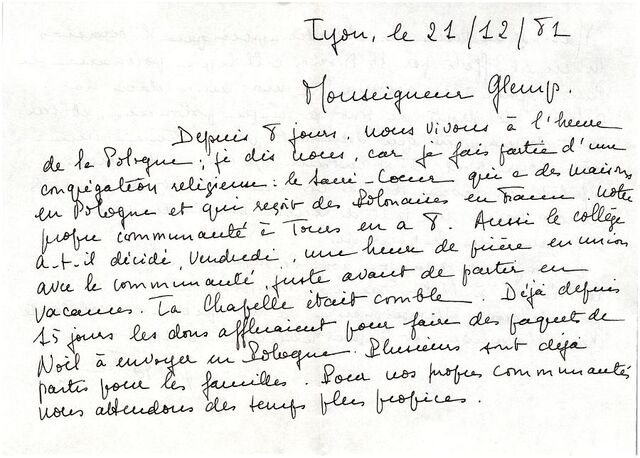 Lyon, le 21/12/81
Monseigneur Glemp.
Depuis 8 jours, nous vivons à l'heure
de la Pologne ; je dis nous, car je fais partie d'une
congrégation religieuse : le Sacré-Coeur qui a des maisons
en Pologne et qui reçoit des Polonaises en France. Notre
propre communauté à Tours en a 8. Aussi le collège
a-t-il décidé, vendredi, une heure de prière en union
avec la communauté, juste avant de partir en
vacances. La Chapelle était comble. Déjà depuis
15 jours les dons affluaient pour faire des paquets de
Noël à envoyer en Pologne. Plusieurs sont déjà
partis pour les familles. Pour nos propres communautés
nous attendons des temps plus propices.